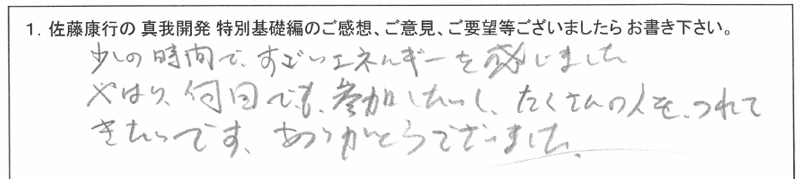 1. 佐藤康行の 真我開発 特別基礎編のご感想、ご意見、ご要望等ございましたら お書き下さい。
少しの時間で、すごいエネルギーを感じました
やはり、何回でも、参加したいし、たくさんの人を、つれて
きたいです、ありがとうございました。